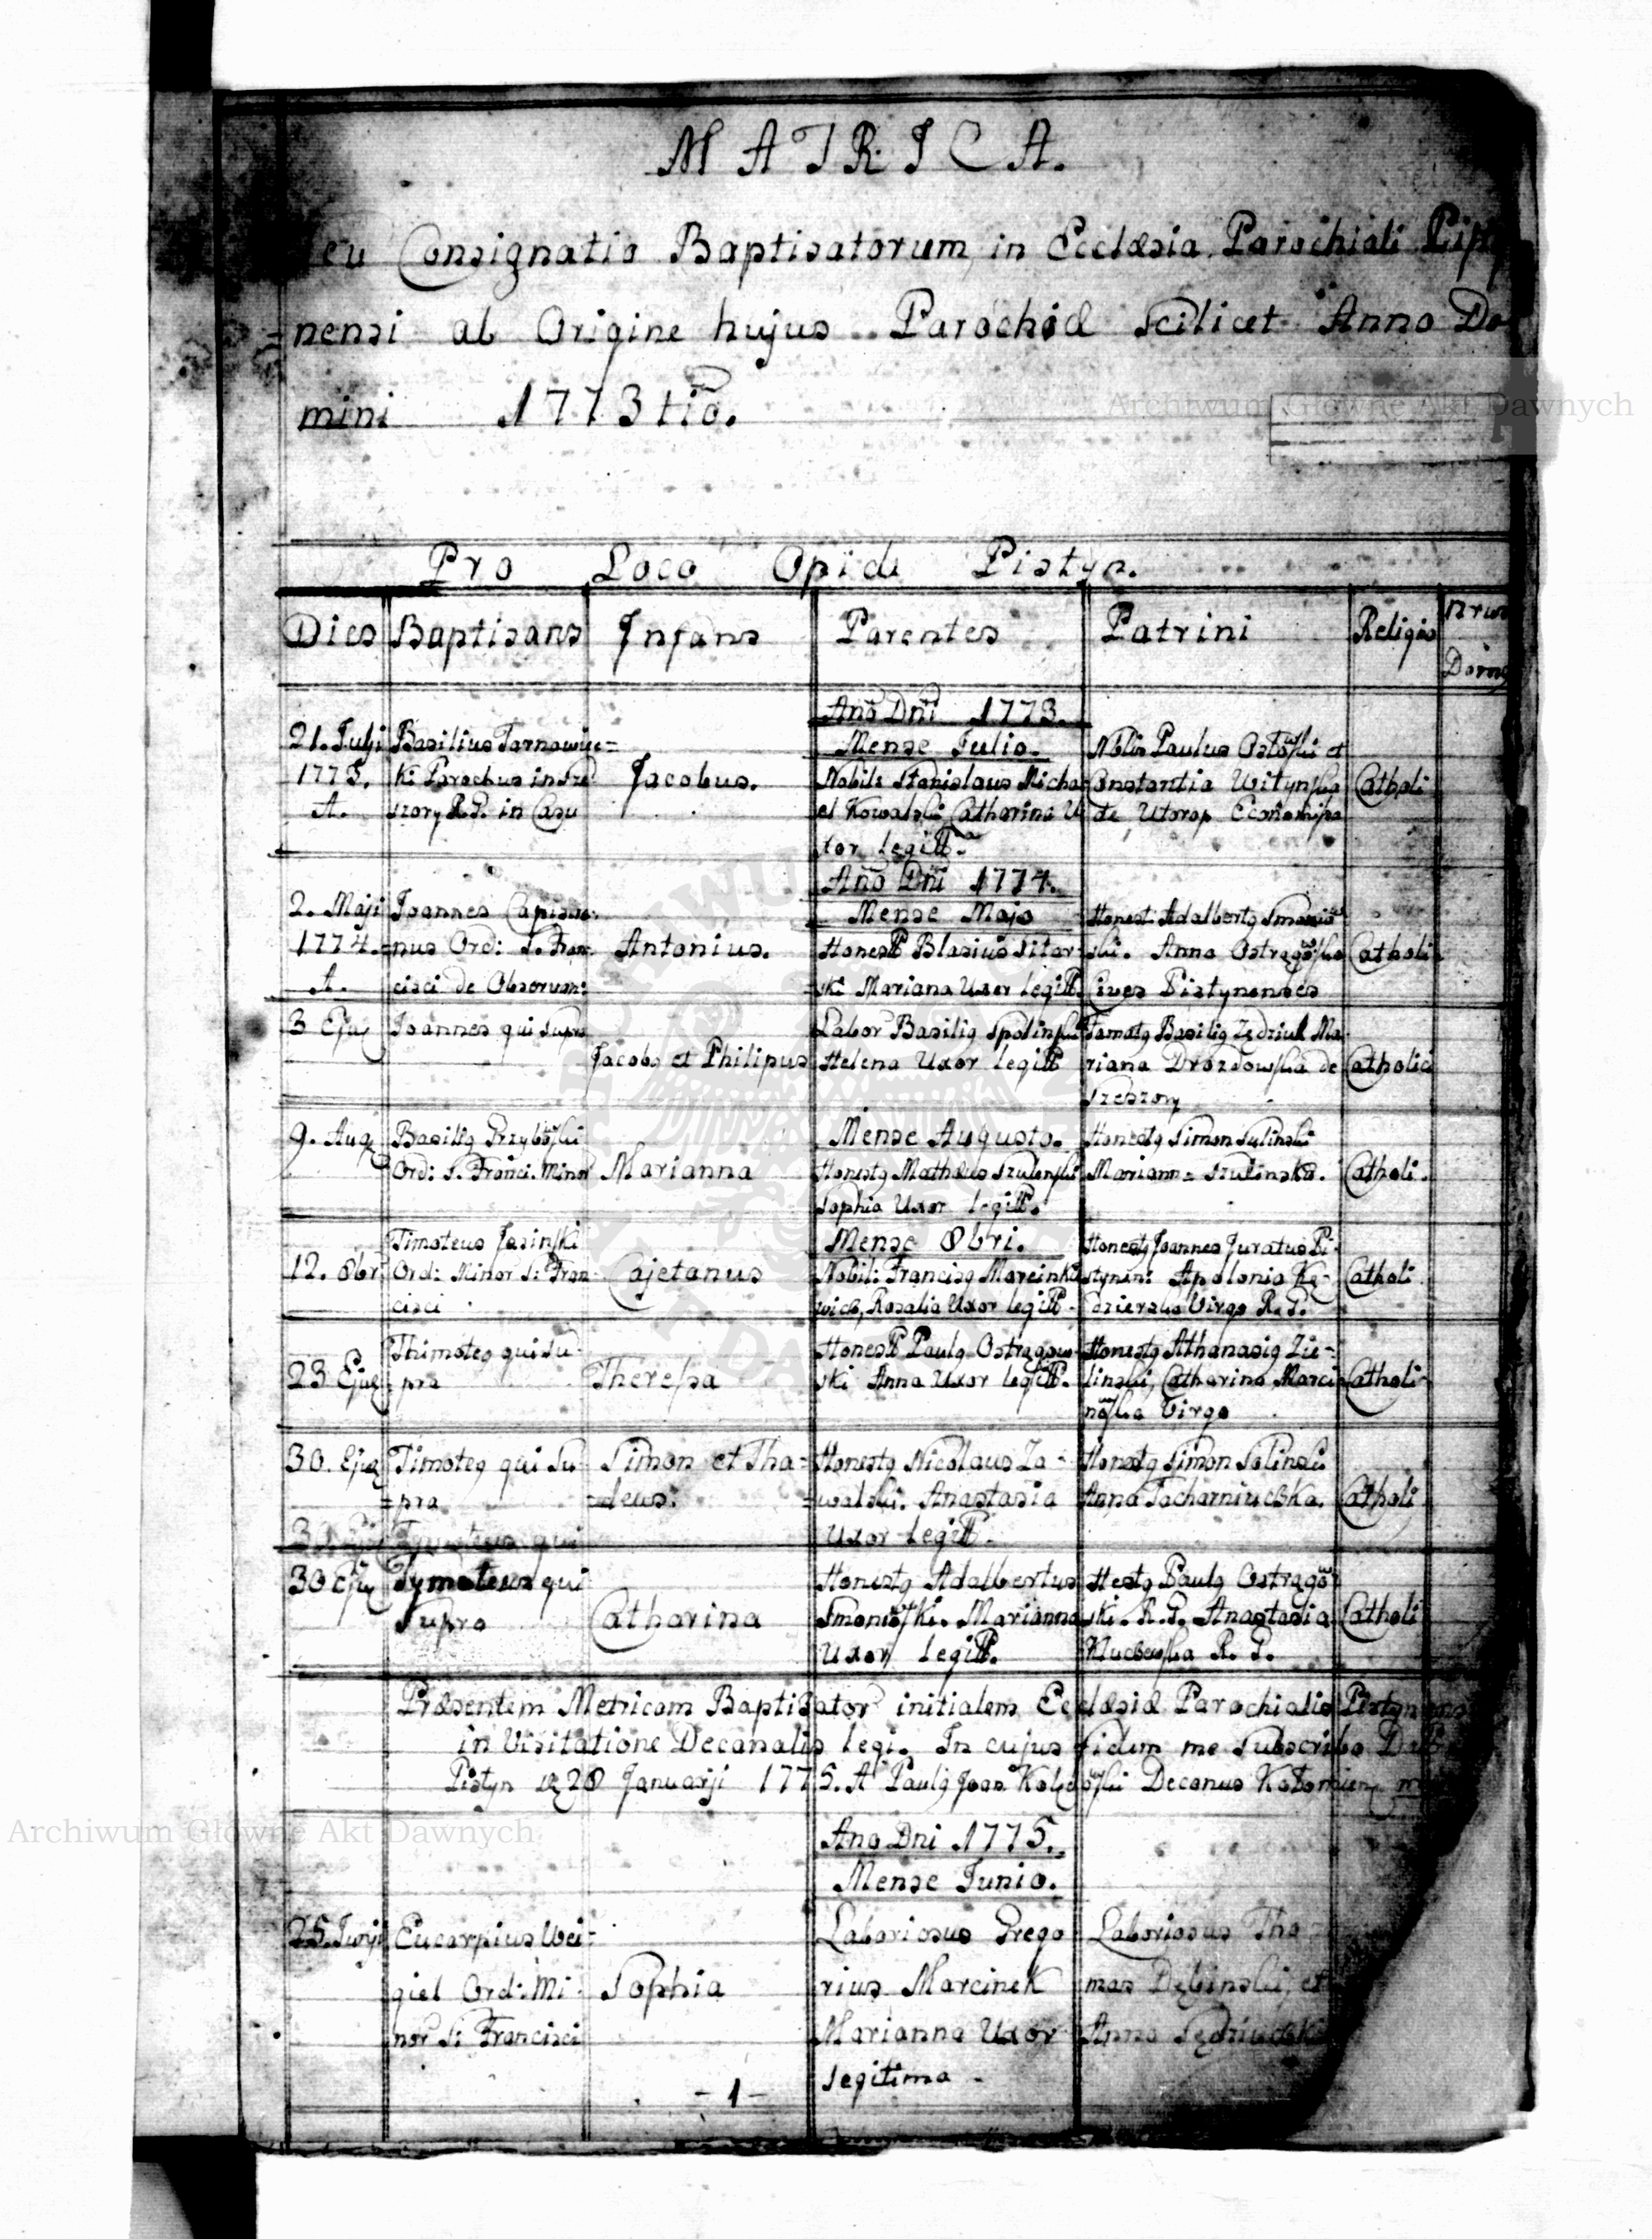 MATRICA.
Seu Consignatio Baptisatorum, in Ecclæsia Parochiali Pisty
=nensi ab Origine hujus Parochiæ scilicet Anno Do
mini 1773tio.
Archiwum Główne Akt Dawnych
Pro Loco Opidi Pistyn.
Dies
Baptisans
Infans
Parentes
Patrini
Religio
Nrus
Domus
Ano Dni 1773.
Mense Julio.
21. Julij
1773.
A.
Basilius Tarnawiec=
ki Parochus in Sze
szory R.G. in Casu
Jacobus.
Nobils Stanislaus Micha
el Kowalski Catharina U
xor legitt.
Nblis Paulus Ostowski et
Constantia Witynska
de Utorop
Catholi
Ano Dni 1774.
Mense Majo
2. Maji
1774.
A.
Joannes Capistra
nus Ord: S. Fran
cisci de Observan:
Antonius.
Honest Blasius Sitar
ski Mariana Uxor legitt.
Honest: Adalbertg
ski. Anna Ostragowska
Cives Pistynenses
Catholi
3 Ejus
Joannes qui supra
Jacobg et Philipus
Labor Basilig Spolinski
Helena Uxor legitt
Famatg Basilig Zędziuk Ma
riana Drozdowska de
Szeszory
Catholici
Mense Augusto.
9. Aug
Basilig Przybylski
Ord: S. Franci. Minor
Marianna
Honestg Mathæus Szulenski
Sophia Uxor legitt.
Honestg Simon Sulinski
Mariann= Szulinska.
Catholi.
Mense 8bri.
12. 8bri
Timoteus Jasinski
Ord: Minor S: Fran
cisci
Cajetanus
Nobil: Francisg Marcinki
wicz, Rosalia Uxor legitt.
Honestg Joannes Juratus Pi
stynen: Apolonia Kę
dzierska Virgo R. G.
Catholi
23 Ejus
Thimoteg qui Su
pra
Theressa
Honest Paulg Ostragow
ski Anna Uxor legitt.
Honestg Athanasig Zie=
linski, Catharina Marci
nowska Virgo
Catholi
30. Ejus
Timoteg qui Su
=pra
Simon et Tha=
=deus.
Honestg Nicolaus Za=
walski. Anastasia
Uxor legitt.
Honestg Simon Solinski
Anna Tacharniuczka.
Catholi
30 Ejus
Tymoteus qui
Supra
Catharina
Honestg Adalbertus
Marianna
Uxor legitt.
Hestg Paulg Ostragow
ski. R. G. Anastasia
R. G.
Catholi
Præsentem Metricam Baptisator initialem Ecclæsiæ Parochialis Pistynens
in Visitatione Decanalis legi. In cujus fidem me subscribo Dat
Pistyn d 20 Januarji 1775. A Paulg Joan Decanus Kołomien mp
Archiwum Główne Akt Dawnych
Ano Dni 1775.
Mense Junio.
25. Junij
Eucarpius Wei=
giel Ord: Mi
nor S: Francisci
Sophia
Laboriosus Grego
rius Marcinek
Marianna Uxor
legitima
Laboriosus Tho
mas Dębinski, et
Anna
-1-